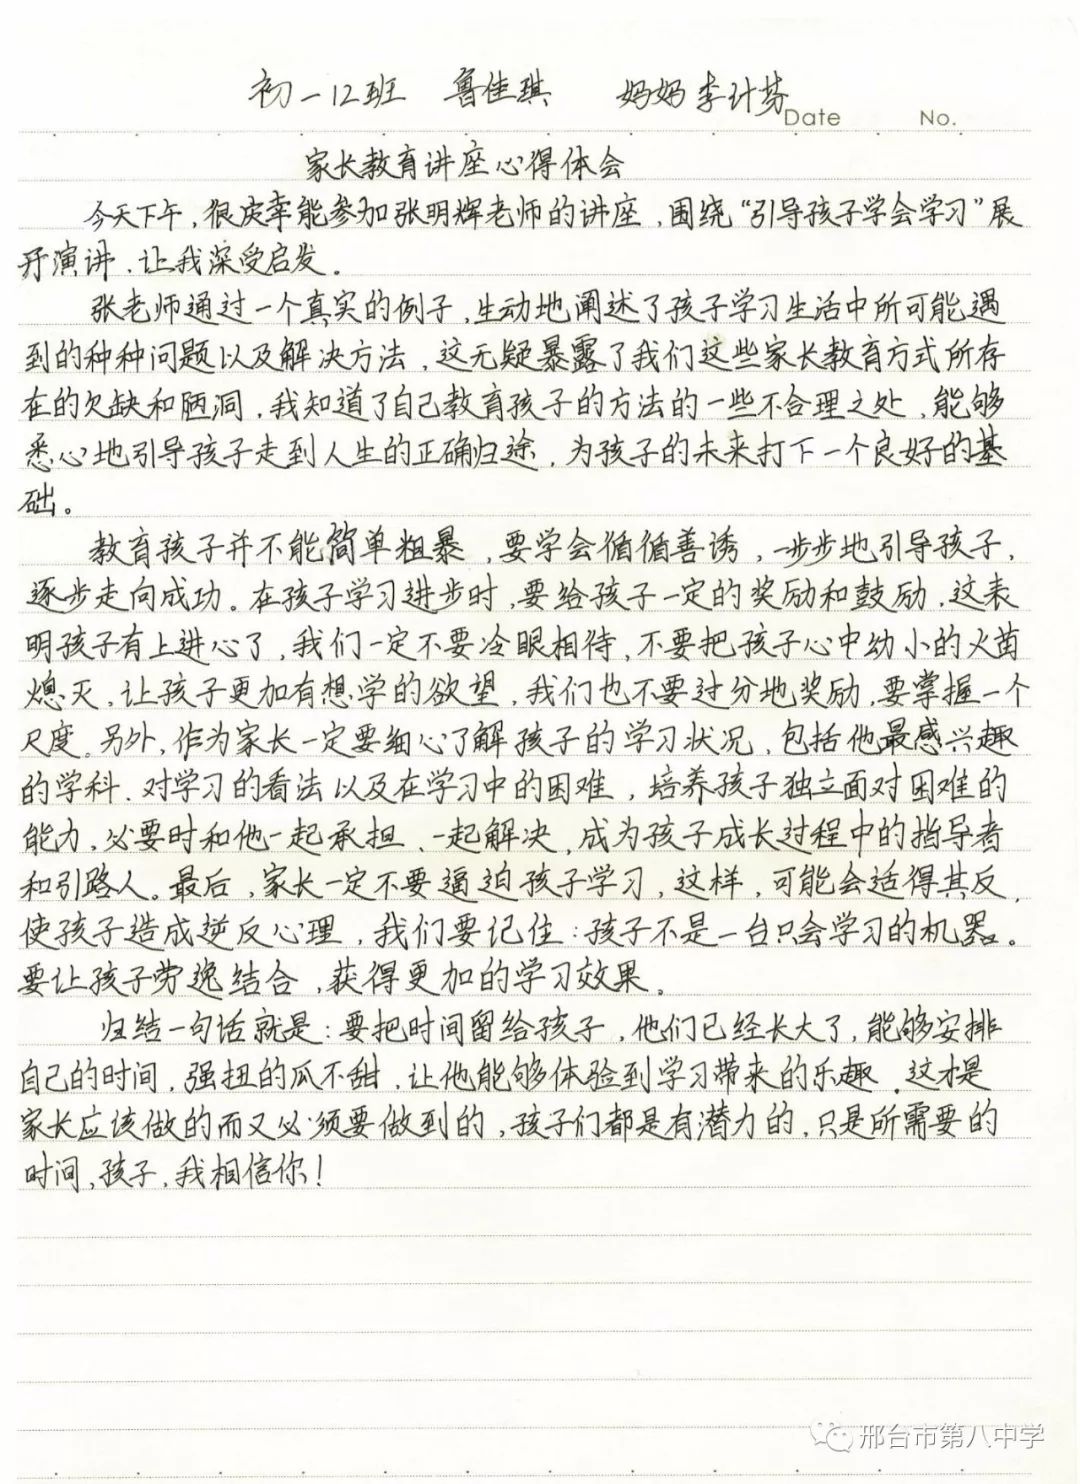 初一12班 鲁佳琪 妈妈 李计芬
Date No.
家长教育讲座心得体会
今天下午,很庆幸能参加张明辉老师的讲座,围绕“引导孩子学会学习”展
开演讲,让我深受启发。
张老师通过一个真实的例子,生动地阐述了孩子学习生活中所可能遇
到的种种问题以及解决方法,这无疑暴露了我们这些家长教育方式所存
在的欠缺和陋洞,我知道了自己教育孩子的方法的一些不合理之处,能够
悉心地引导孩子走到人生的正确归途,为孩子的未来打下一个良好的基
础。
教育孩子并不能简单粗暴,要学会循循善诱,一步步地引导孩子,
逐步走向成功。在孩子学习进步时,要给孩子一定的奖励和鼓励,这表
明孩子有上进心了,我们一定不要冷眼相待,不要把孩子心中幼小的火苗
熄灭,让孩子更加有想学的欲望,我们也不要过分地奖励,要掌握一个
尺度。另外,作为家长一定要细心了解孩子的学习状况,包括他最感兴趣
的学科、对学习的看法以及在学习中的困难,培养孩子独立面对困难的
能力,必要时和他一起承担、一起解决,成为孩子成长过程中的指导者
和引路人。最后,家长一定不要逼迫孩子学习,这样,可能会适得其反,
使孩子造成逆反心理,我们要记住:孩子不是一台只会学习的机器。
要让孩子劳逸结合,获得更加的学习效果。
归结一句话就是:要把时间留给孩子,他们已经长大了,能够安排
自己的时间,强扭的瓜不甜,让他能够体验到学习带来的乐趣,这才是
家长应该做的而又必须要做到的,孩子们都是有潜力的,只是所需要的
时间,孩子,我相信你!
邢台市第八中学